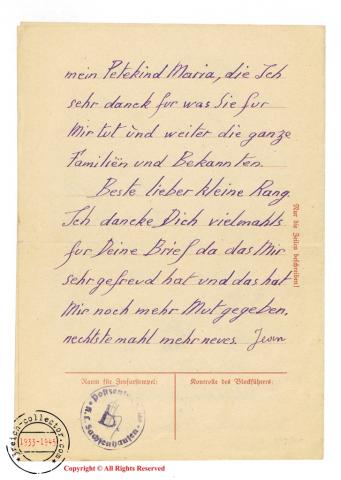 mein Petekind Maria, die Ich
sehr danck fur was Sie fur
Mir tut ùnd weiter die ganze
Familiën und Bekannten.
Beste lieber kleine Rang.
Ich dancke Dich vielmahls
fur Deine Brief da das Mir
sehr gefreud hat und das hat
Mir noch mehr Mut gegeben,
nechste mahl mehr neues. Jean
Nur die Zeilen beschreiben!
Raum für Zensurstempel:
Kontrolle des Blockführers:
Postzens
K.L. Sachsenhausen
reich-collector.com
1933-1945
Copyright © All Rights Reserved